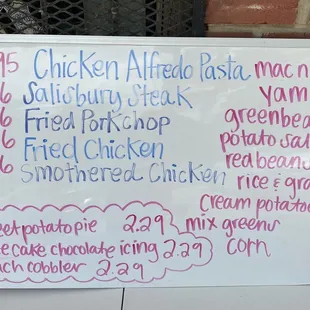 95 Chicken Alfredo Pasta
6 Salisbury Steak
6 Fried Porkchop
6 Fried Chicken
6 Smothered Chicken
mac n
yam
greenbea
potato sal
redbeans
rice & gra
Cream potatoe
mix greens
corn
eet potato pie 2.29
te cake chocolate icing 2.29
ach cobbler 2.29